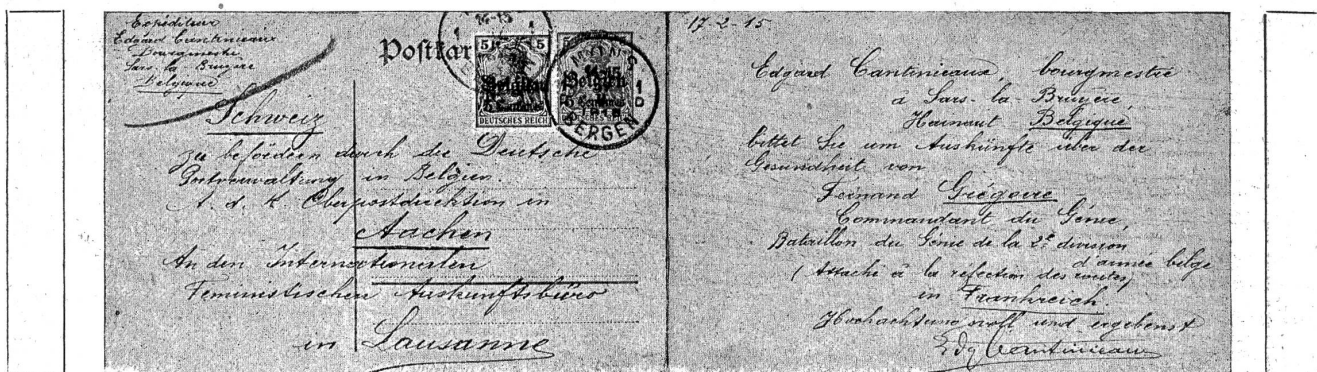 Expéditeur
Edgard Cantinieaux
Bourgmestre
Sars la Bruyère
Belgique
Postkar
5 5
Belgien
5 Centimes
DEUTSCHES REICH
Belgien
5 Centimes
DEUTSCHES REICH
MONS
BERGEN
Schweiz
zu befördern durch die Deutsche
Postverwaltung in Belgien.
t. d. K. Oberpostdirektion in
Aachen
An den Internationalen
Feministischen Auskunftsbüro
in Lausanne
17-2-15
Edgard Cantinieaux, bourgmestre
à Sars-la-Bruyère,
Hainaut Belgique
bittet Sie um Auskünfte über der
Gesundheit von
Fernand Grégoire
Commandant du Génie,
Bataillon du Génie de la 2e division
d'armée belge
(Attaché à la réfection des routes)
in Frankreich.
Hochachtungsvoll und ergebenst
Edg Cantinieaux